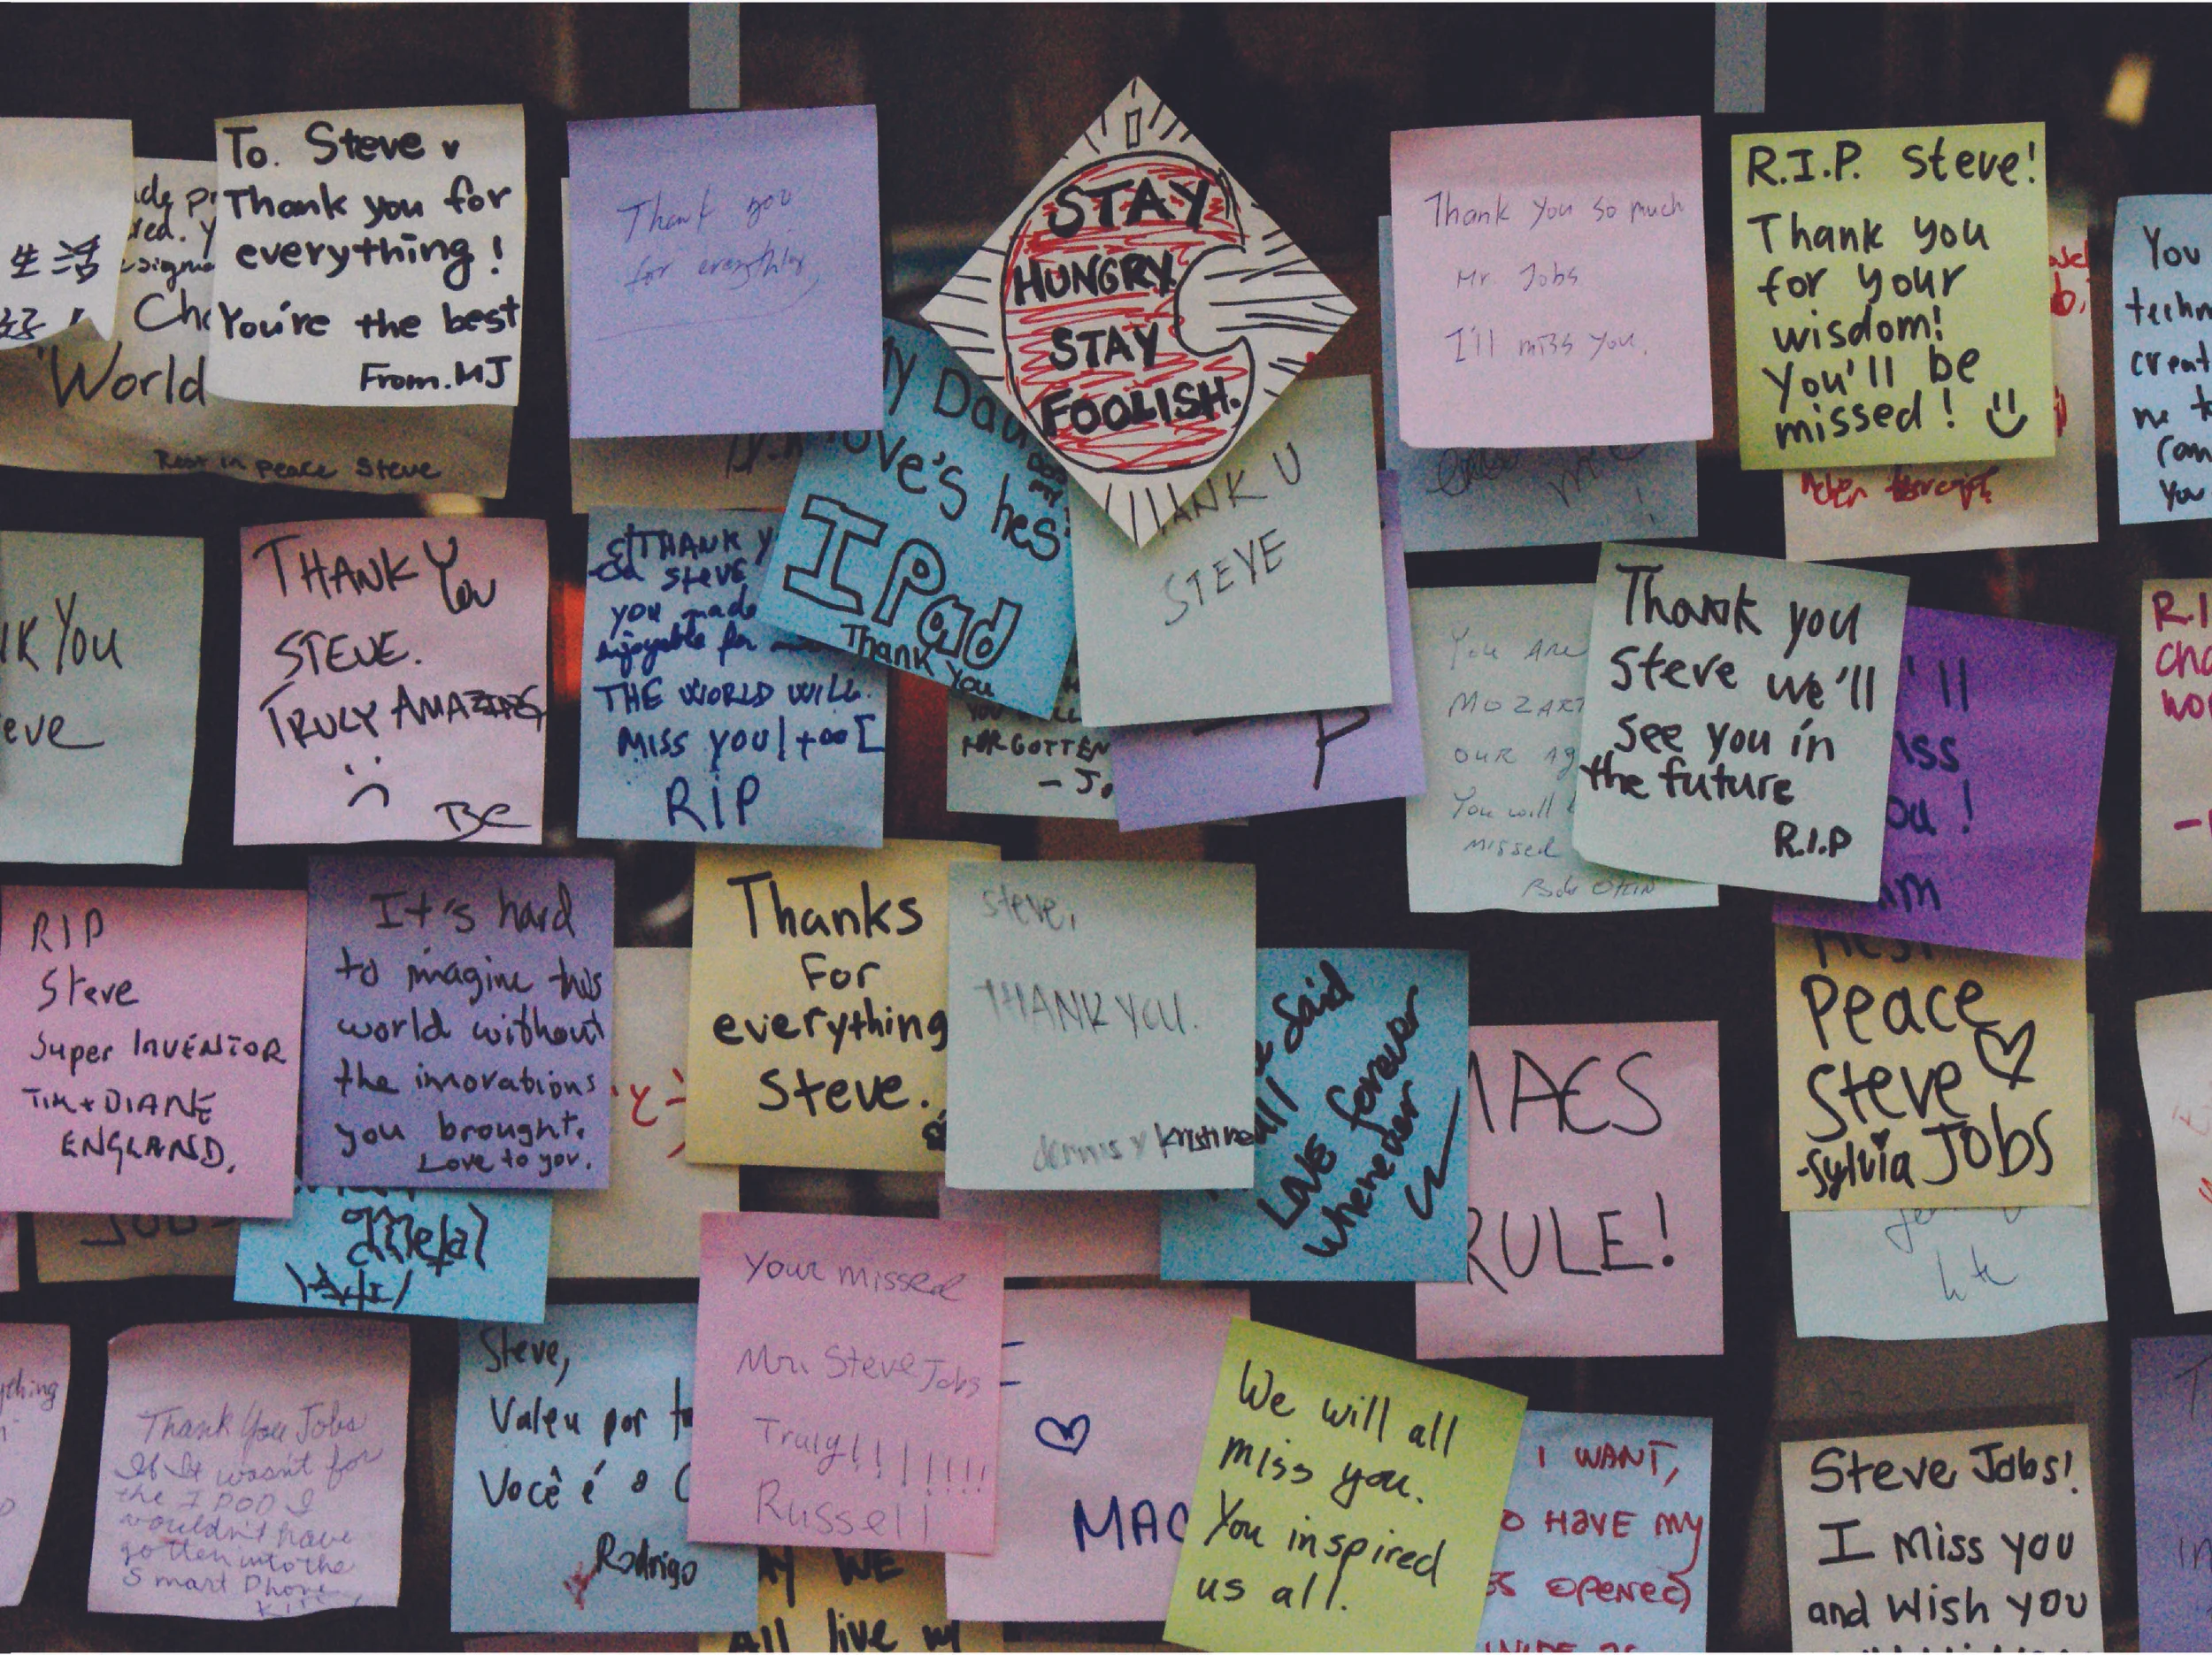 生活
好!
World
Rest in peace Steve
To. Steve
Thank you for
everything!
You're the best
From. MJ
Thank you
for everything
STAY
HUNGRY
STAY
FOOLISH.
Thank you so much
Mr. Jobs
I'll miss you.
R.I.P. Steve!
Thank you
for your
wisdom!
You'll be
missed!
You
You
You
THANK You
STEVE.
TRULY AMAZING
BC
THANK Y
Steve
you made
enjoyable for
THE WORLD WILL
MISS YOU]+∞[
RIP
My Dau
love's hes
IPad
Thank You
ANK U
STEVE
FORGOTTEN
- J.
P
You Are
MOZART
OUR AG
You will
missed
Thank you
Steve we'll
see you in
the future
R.I.P
'll
iss
ou!
R.I
cha
wor
K You
eve
RIP
Steve
Super INVENTOR
TIM + DIANE
ENGLAND.
It's hard
to imagine this
world without
the innovations
you brought.
Love to you.
Thanks
For
everything
Steve.
Steve,
THANK YOU.
dennis y kristine
Said
all
Love forever
whenever
MACS
RULE!
Rest
Peace
Steve
Jobs
-Sylvia
Your missed
Mr. Steve Jobs
Truly!!!!!!!
Russell
ything
Thank You Jobs
If It wasn't for
the I POD I
wouldn't have
gotten into the
Smart Phone
Steve,
Valeu por t
Você é o
Rodrigo
MAC
We will all
miss you.
You inspired
us all.
I WANT,
O HAVE MY
OPENED
AY WE
All live
Steve Jobs!
I Miss you
and Wish you